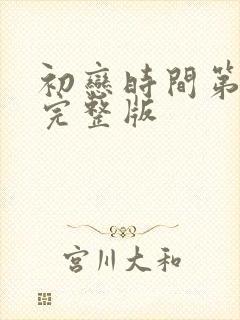 初戀時間第
完整版
宮川大和